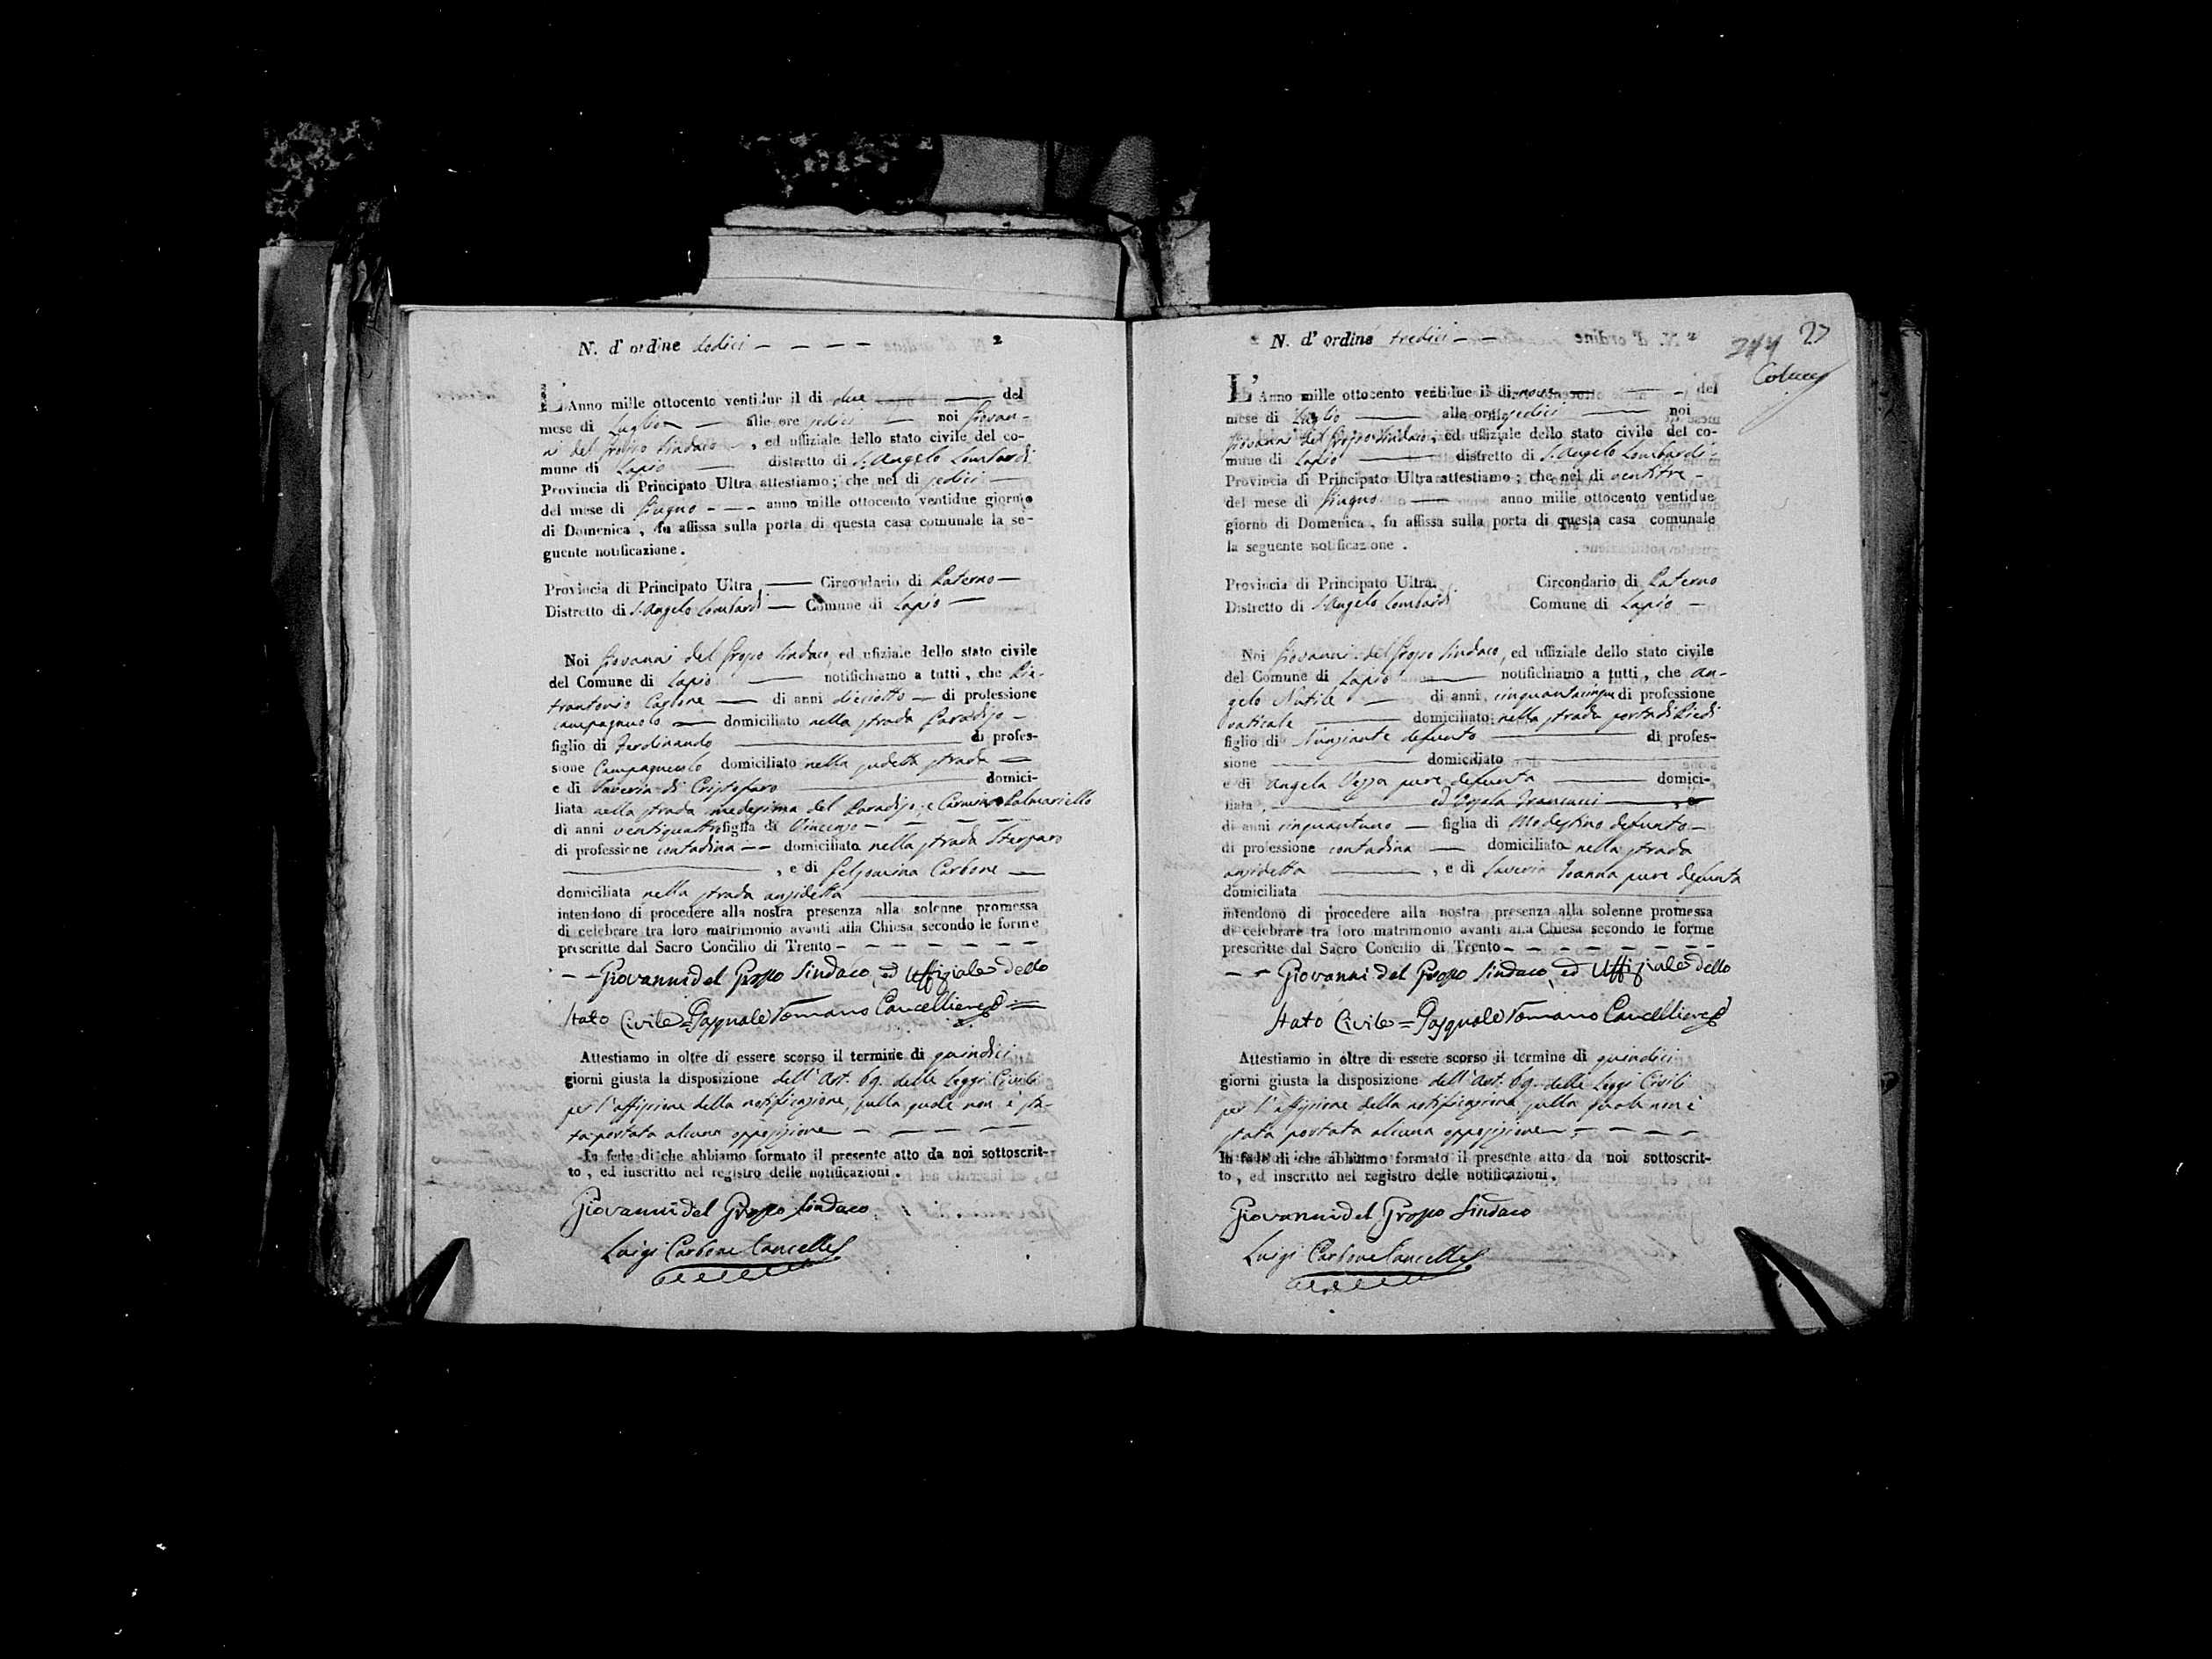 N. d' ordine dodici 2
L'Anno mille ottocento ventidue il di due del
mese di Luglio alle ore sedici noi Giovan-
ni del Grosso Sindaco, ed uffiziale dello stato civile del co-
mune di Lapio distretto di S. Angelo Lombardi
Provincia di Principato Ultra attestiamo; che nel di sedici
del mese di Giugno anno mille ottocento ventidue giorno
di Domenica, fu affissa sulla porta di questa casa comunale la se-
guente notificazione.
Provincia di Principato Ultra Circondario di Paterno
Distretto di S. Angelo Lombardi Comune di Lapio
Noi Giovanni del Grosso Sindaco, ed ufiziale dello stato civile
del Comune di Lapio notifichiamo a tutti, che Pie-
trantonio Caglone di anni diciotto di professione
campagnuolo domiciliato nella strada Paradiso
figlio di Ferdinando di profes-
sione Campagnuolo domiciliato nella sudetta strada
e di Saveria di Cristofaro domici-
liata nella strada medesima del Paradiso, e Carmina Palmariello
di anni ventiquattro figlia di Vincenzo
di professione contadina domiciliato nella strada Sterparo
, e di Gelsomina Carbone
domiciliata nella strada anzidetta
intendono di procedere alla nostra presenza alla solenne promessa
di celebrare tra loro matrimonio avanti alla Chiesa secondo le forme
prescritte dal Sacro Concilio di Trento
Giovanni del Grosso Sindaco, ed Uffiziale dello
Stato Civile = Pasquale Romano Cancelliere =
Attestiamo in oltre di essere scorso il termine di quindici
giorni giusta la disposizione dell'Art. 69. delle Leggi Civili
per l'affissione della notificazione, sulla quale non è sta-
ta portata alcuna opposizione
In fede di che abbiamo formato il presente atto da noi sottoscrit-
to, ed inscritto nel registro delle notificazioni.
Giovanni del Grosso Sindaco
Luigi Carbone Cancell.
N. d' ordine tredici 27
L'Anno mille ottocento ventidue il di nove del
mese di Luglio alle ore sedici noi
Giovanni del Grosso Sindaco, ed uffiziale dello stato civile del co-
mune di Lapio distretto di S. Angelo Lombardi
Provincia di Principato Ultra attestiamo; che nel di ventitre
del mese di Giugno anno mille ottocento ventidue
giorno di Domenica, fu affissa sulla porta di questa casa comunale
la seguente notificazione.
Provincia di Principato Ultra. Circondario di Paterno
Distretto di S. Angelo Lombardi Comune di Lapio
Noi Giovanni del Grosso Sindaco, ed uffiziale dello stato civile
del Comune di Lapio notifichiamo a tutti, che An-
gelo Natile di anni cinquantacinque di professione
vaticale domiciliato nella strada porta di Piedi
figlio di Nunziante defunto di profes-
sione domiciliato
e di Angela Vezza pure defunta domici-
liata, ed Orsola Irancucci, e
di anni cinquantuno figlia di Modestino defunto
di professione contadina domiciliato nella strada
anzidetta, e di Saveria Ioanna pure defunta
domiciliata
intendono di procedere alla nostra presenza alla solenne promessa
di celebrare tra loro matrimonio avanti alla Chiesa secondo le forme
prescritte dal Sacro Concilio di Trento
Giovanni del Grosso Sindaco, ed Uffiziale dello
Stato Civile = Pasquale Romano Cancelliere
Attestiamo in oltre di essere scorso il termine di quindici
giorni giusta la disposizione dell'Art. 69. delle Leggi Civili
per l'affissione della notificazione sulla quale non è
stata portata alcuna opposizione
In fede di che abbiamo formato il presente atto da noi sottoscrit-
to, ed inscritto nel registro delle notificazioni.
Giovanni del Grosso Sindaco
Luigi Carbone Cancell.